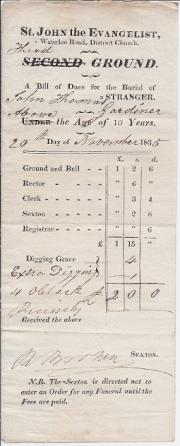 St. John the Evangelist,
Waterloo Road, District Church.
Third
SECOND GROUND.
A Bill of Dues for the Burial of
John Thomas a STRANGER.
Above Gardiner
UNDER the Age of 10 Years.
20th Day of November 1835
£. s. d.
Ground and Bell - - 1 2 6
Rector - - „ 6 „
Clerk - - „ 3 4
Sexton - - „ 2 8
Registrar - - „ „ 6
£ 1 15 „
Digging Grave 4
Extra Digging 1
4 OClock £ 2 0 0
Precisely
Received the above
SEXTON.
N.B. The Sexton is directed not to
enter an Order for any Funeral until the
Fees are paid.